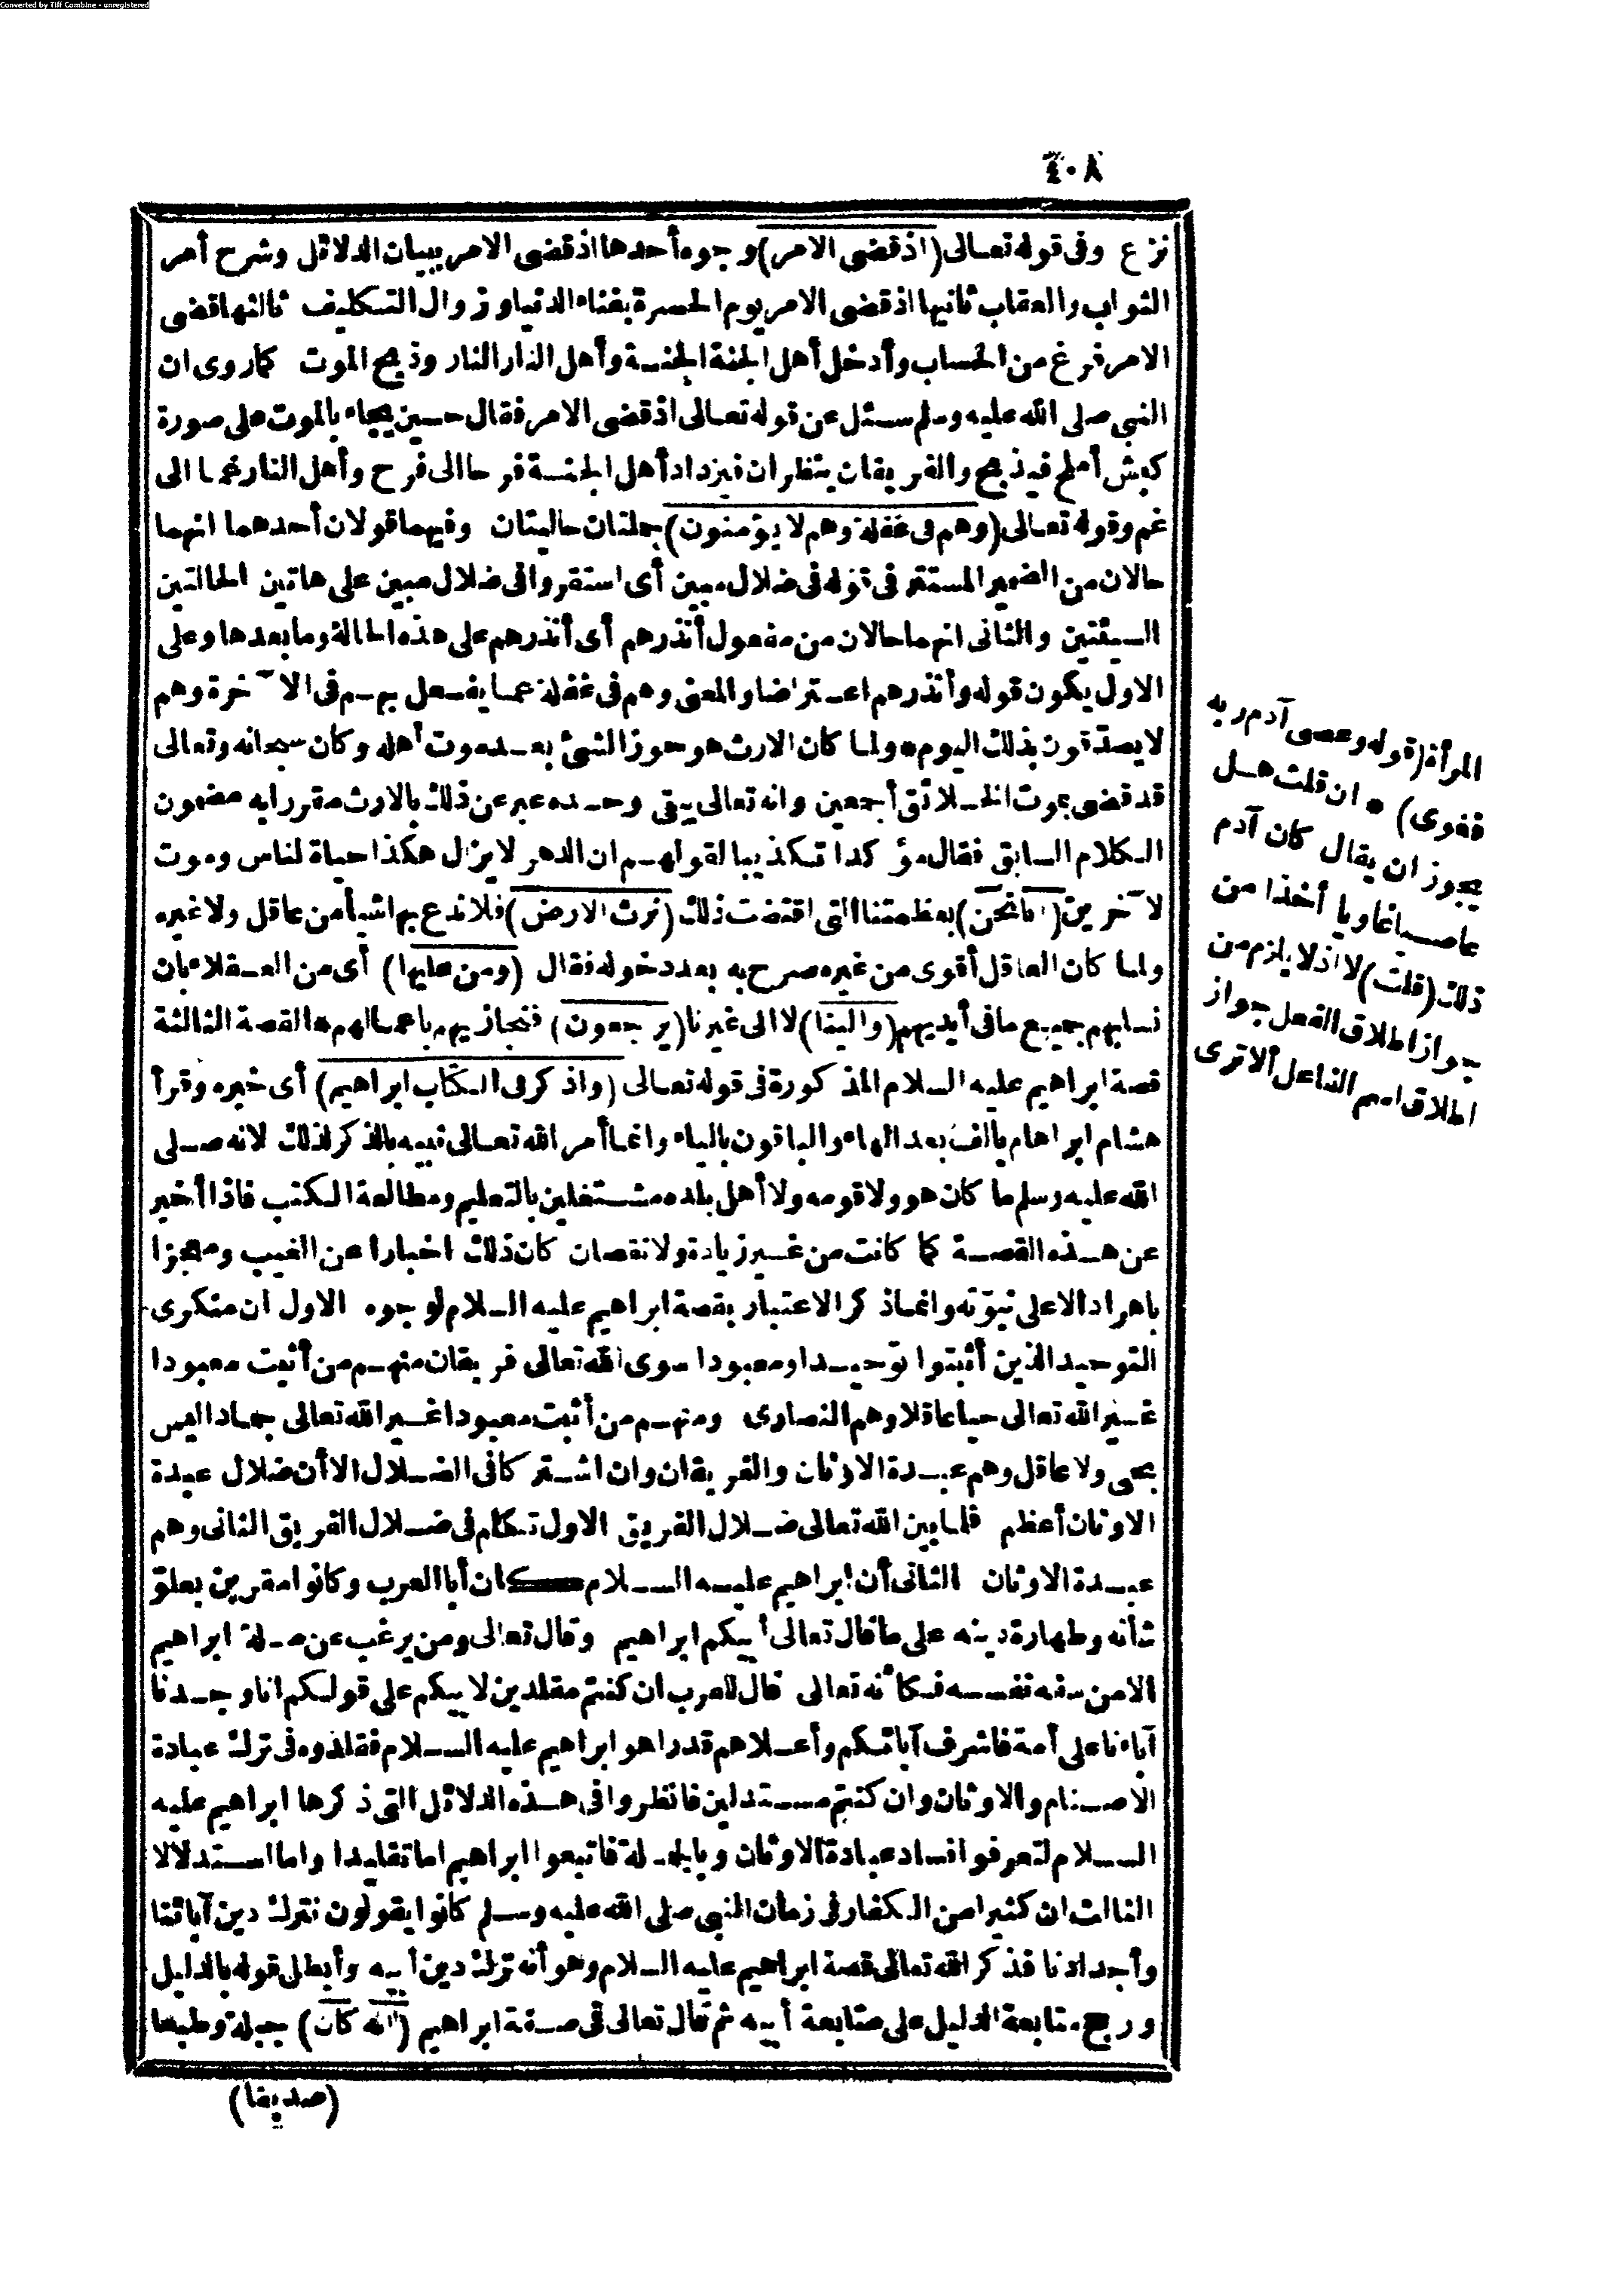 Converted by Tiff Combine - unregistered
٤٠٨
نزع وفى قوله تعالى (اذ قضى الامر) وجوه أحدها اذ قضى الامر ببيان الدلائل وشرح أمر
الثواب والعقاب ثانيها اذ قضى الامر يوم الحسرة بفناء الدنيا وزوال التكليف ثالثها قضى
الامر فرغ من الحساب وأدخل أهل الجنة الجنة وأهل النار النار وذبح الموت كما روى ان
النبى صلى الله عليه وسلم سئل عن قوله تعالى اذ قضى الامر فقال حين يجاء بالموت على صورة
كبش أملح فيذبح والفريقان ينظران فيزداد أهل الجنة فرحا الى فرح وأهل النار غما الى
غم وقوله تعالى (وهم فى غفلة وهم لا يؤمنون) جملتان حاليتان وفيهما قولان أحدهما انهما
حالان من الضمير المستتر فى قوله فى ضلال مبين أى استقروا فى ضلال مبين على هاتين الحالتين
السيئتين والثانى انهما حالان من مفعول أنذرهم أى أنذرهم على هذه الحالة وما بعدها وعلى
الاول يكون قوله وأنذرهم اعتراضا والمعنى وهم فى غفلة عما يفعل بهم فى الآخرة وهم
لا يصدّقون بذلك اليوم * ولما كان الارث هو حوز الشئ بعد موت أهله وكان سبحانه وتعالى
قد قضى بموت الخلائق أجمعين وانه تعالى يبقى وحده عبر عن ذلك بالارث مقررا به مضمون
الكلام السابق فقال مؤكدا تكذيبا لقولهم ان الدهر لا يزال هكذا حياة لناس وموت
لآخرين (انا نحن) بعظمتنا التى اقتضت ذلك (نرث الارض) فلا ندع بها شيأ من عاقل ولا غيره
ولما كان العاقل أقوى من غيره صرح به بعد دخوله فقال (ومن عليها) أى من العقلاء بان
نسلبهم جميع ما فى أيديهم (والينا) لا الى غيرنا (يرجعون) فنجازيهم باعمالهم * القصة الثالثة
قصة ابراهيم عليه السلام المذكورة فى قوله تعالى (واذكر فى الكتاب ابراهيم) أى خبره وقرأ
هشام ابراهام بالف بعد الهاء والباقون بالياء وانما أمر الله تعالى نبيه بالذكر لذلك لانه صلى
الله عليه وسلم ما كان هو ولا قومه ولا أهل بلده مشتغلين بالتعليم ومطالعة الكتب فاذا أخبر
عن هذه القصة كما كانت من غير زيادة ولا نقصان كان ذلك اخبارا عن الغيب ومعجزا
باهرا دالا على نبوّته وانما ذكر الاعتبار بقصة ابراهيم عليه السلام لوجوه الاول ان منكرى
التوحيد الذين أثبتوا توحيدا ومعبودا سوى الله تعالى فريقان منهم من أثبت معبودا
غير الله تعالى حيا عاقلا وهم النصارى ومنهم من أثبت معبودا غير الله تعالى جمادا ليس
بحى ولا عاقل وهم عبدة الاوثان والفريقان وان اشتركا فى الضلال الا أن ضلال عبدة
الاوثان أعظم فلما بين الله تعالى ضلال الفريق الاول تكلم فى ضلال الفريق الثانى وهم
عبدة الاوثان الثانى أن ابراهيم عليه السلام كان أبا العرب وكانوا مقرين بعلوّ
شأنه وطهارة دينه على ما قال تعالى أبيكم ابراهيم وقال تعالى ومن يرغب عن ملة ابراهيم
الا من سفه نفسه فكأنه تعالى قال للعرب ان كنتم مقلدين لابيكم على قولكم انا وجدنا
آباءنا على أمة فاشرف آبائكم وأعلاهم قدرا هو ابراهيم عليه السلام فقلدوه فى ترك عبادة
الاصنام والاوثان وان كنتم مستدلين فانظروا فى هذه الدلائل التى ذكرها ابراهيم عليه
السلام لتعرفوا فساد عبادة الاوثان وبالجملة فاتبعوا ابراهيم اما تقليدا واما استدلالا
الثالث ان كثيرا من الكفار فى زمان النبى صلى الله عليه وسلم كانوا يقولون نترك دين آبائنا
وأجدادنا فذكر الله تعالى قصة ابراهيم عليه السلام وهو أنه ترك دين أبيه وأبطل قوله بالدليل
ورجح متابعة الدليل على متابعة أبيه ثم قال تعالى فى صفة ابراهيم (انه كان) جبلة وطبعا
(صديقا)
المرأة (قوله وعصى آدم ربه
فغوى) * ان قلت هل
يجوز ان يقال كان آدم
عاصيا غاويا أخذا من
ذلك (قلت) لا اذ لا يلزم من
جواز اطلاق الفعل جواز
اطلاق اسم الفاعل ألا ترى